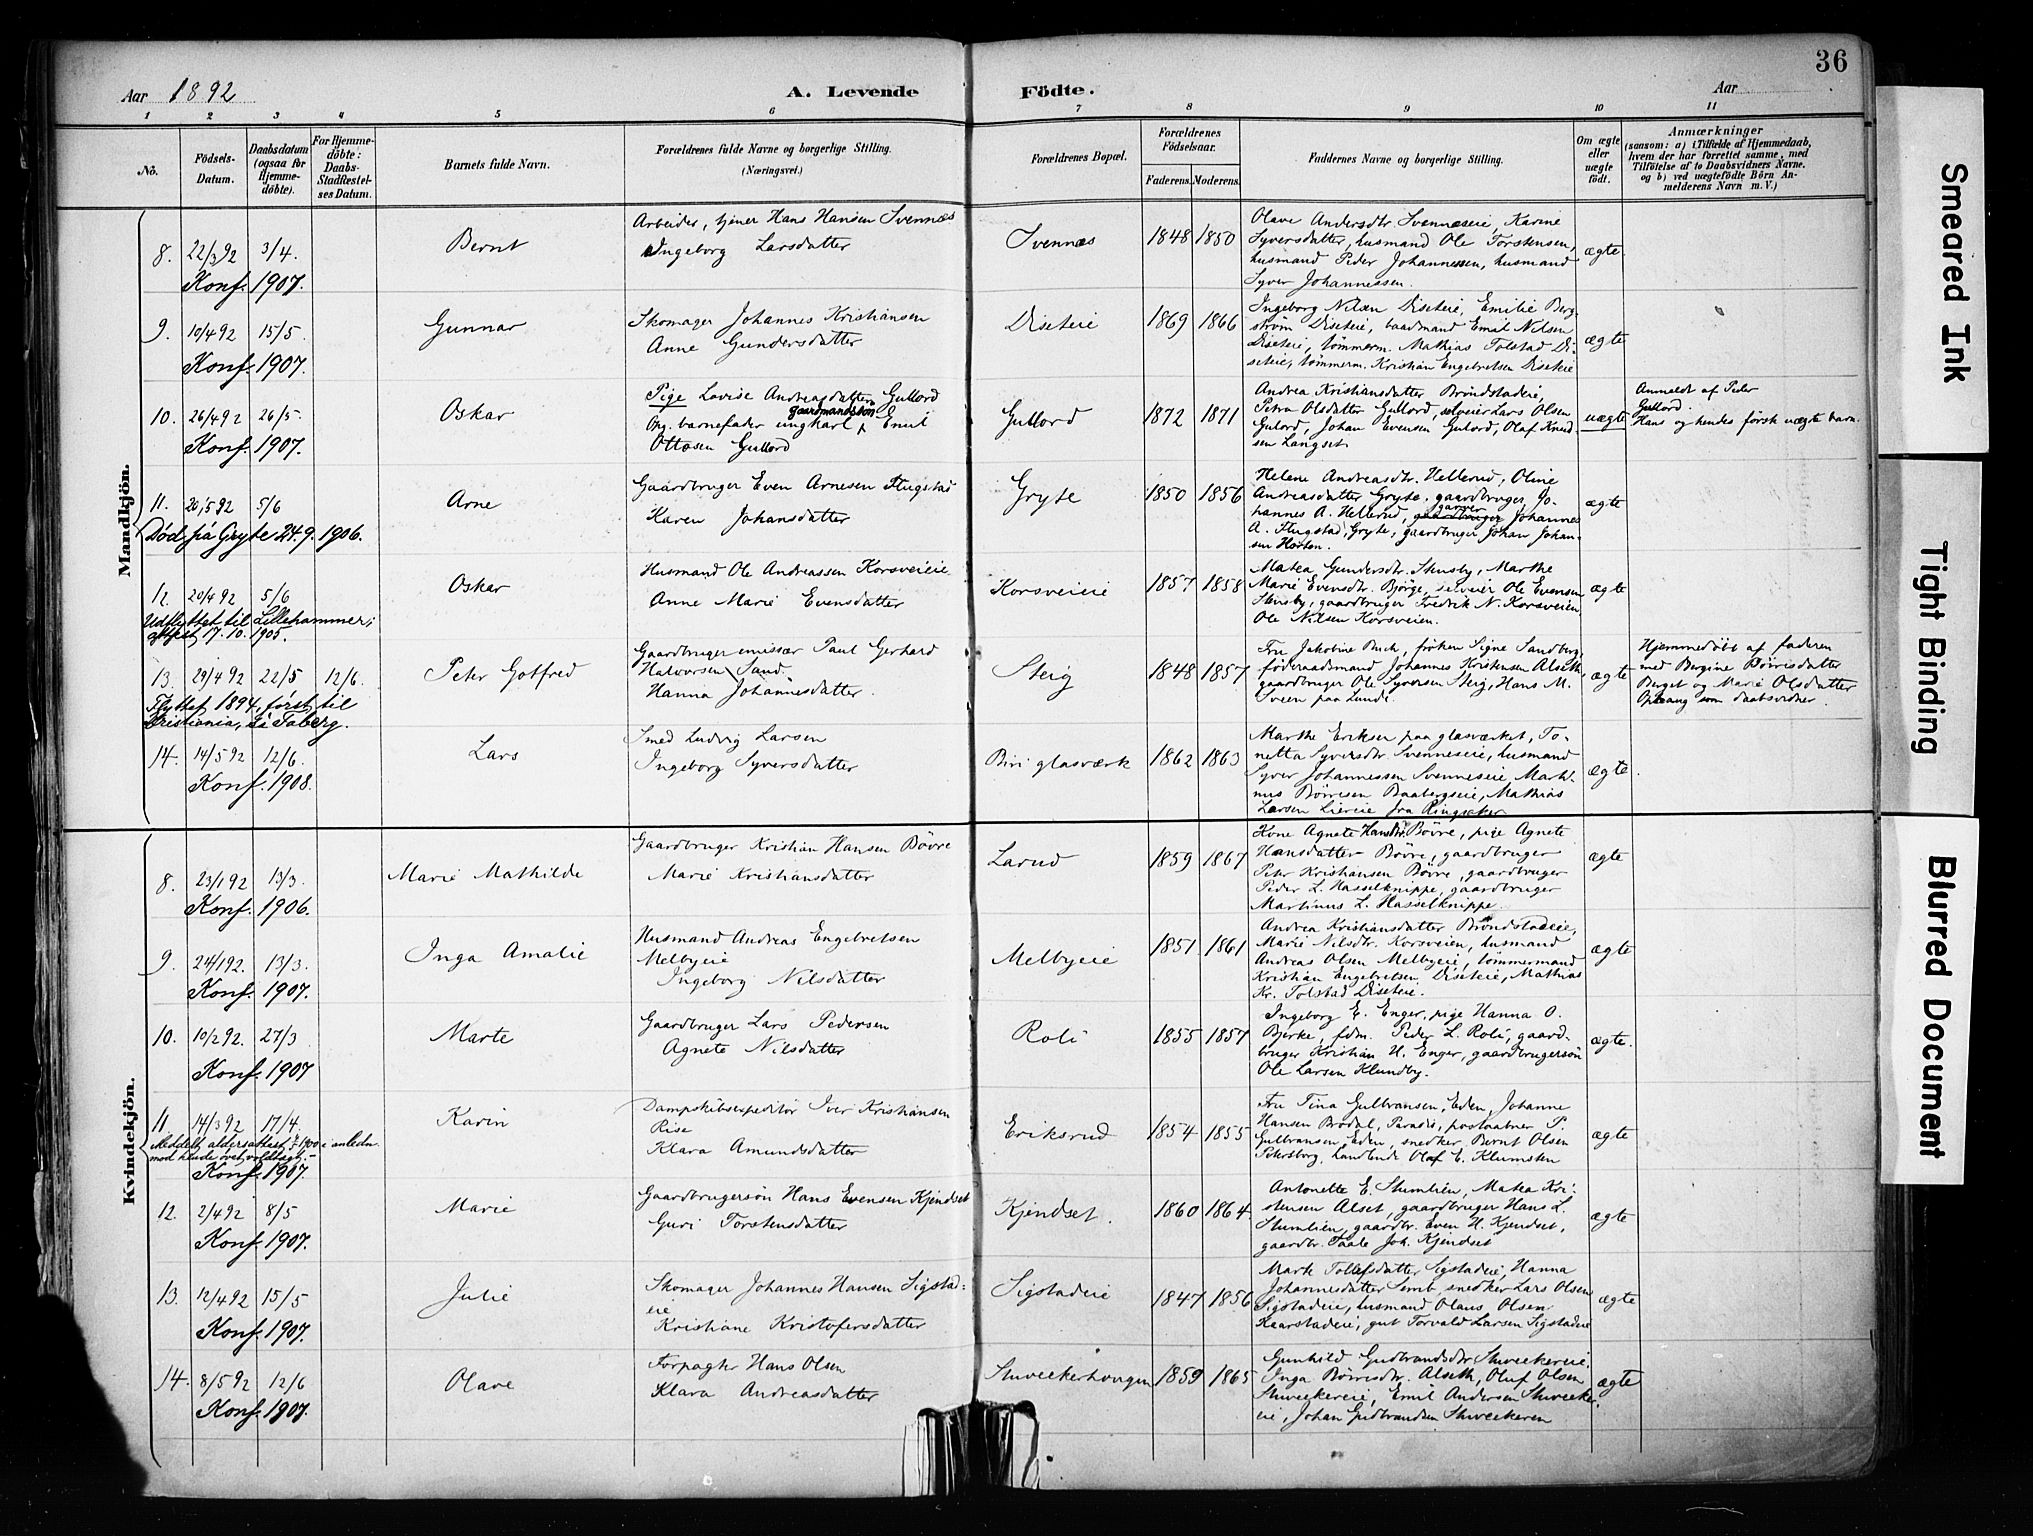 36
Aar 1892
A. Levende
Födte.
Aar
1 2 3 4 5 6 7 8 9 10 11
No.
Födsels-
Datum.
Daabsdatum
(ogsaa for
Hjemme-
döbte).
For Hjemme-
döbte:
Daabs-
Stadfæstel-
ses Datum.
Barnets fulde Navn.
Forældrenes fulde Navne og borgerlige Stilling.
(Næringsvei.)
Forældrenes Bopæl.
Forældrenes
Födselsaar.
Faderens. Moderens.
Faddernes Navne og borgerlige Stilling.
Om ægte
eller
uægte
födt.
Anmærkninger
(saasom: a) i Tilfælde af Hjemmedaab,
hvem der har forrettet samme, med
Tilföielse af to Daabsvidners Navne.
og b) ved uægtefödte Börn An-
melderens Navn m. V.)
Mandkjön.
8. 22/3 92 3/4.
Konf. 1907.
Bernt
Arbeider, tjener Hans Hansen Svennæs
Ingeborg Larsdatter
Svennæs
1848 1850
Olave Andersdtr. Svennæseie, Karine
Syversdatter, husmand Ole Torstensen,
husmand Peder Johannessen, husmand
Syver Johannessen.
ægte
9. 10/4 92 15/5
Konf. 1907.
Gunnar
Skomager Johannes Kristiansen
Anne Gundersdatter
Diseteie
1869 1866
Ingeborg Nilsen Diseteie, Emilie Berg-
ström Diseteie, baadmand Emil Nilsen
Diseteie, tömmerm. Mathias Tolstad Di-
seteie, tömmerm. Kristian Engebretsen Diseteie
ægte
10. 26/4 92 26/5
Konf. 1907.
Oskar
Pige Lovise Andreasdatter Gullord
Og. barnefader ungkarl gaardmandssön Emil
Ottosen Gullord
Gullord
1872 1871
Andrea Kristiansdatter Bröndstadeie,
Petra Olsdatter Gullord, selveier Lars Olsen
Gulord, Johan Evensen Gulord, Olaf Knud-
sen Langset
uægte
Anmeldt af Peder
Gullord.
Hans og hendes förste uægte barn.
11. 20/5 92 5/6
Död på Gryte 24.9. 1906.
Arne
Gaardbruger Even Arnesen Flugstad
Karen Johansdatter
Gryte
1850 1856
Helene Andreasdtr. Hellerud, Oline
Andreasdatter Gryte, gaardbruger Jo-
hannes A. Hellerud, garver Johannes
A. Flugstad, Gryte, gaardbruger Johan Johan-
sen Horten.
ægte
12. 20/4 92 5/6
Udflyttet til Lillehammer;
attest 17.10.1905.
Oskar
Husmand Ole Andreassen Korsveieie
Anne Marie Evensdatter
Korsveieie
1857 1858
Matea Gundersdtr. Stensby, Marthe
Marie Evensdtr. Björge, selveier Ole Evensen
Stensby, gaardbruger Fredrik N. Korsveien
Ole Nilsen Korsveien.
ægte
13. 29/4 92 22/5 12/6.
Flyttet 1894, först til
Kristiania, så Faberg.
Peter Gotfred
Gaardbruger emissær Paul Gerhard
Halvorsen Sand.
Hanna Johannesdatter.
Steig
1848 1857
Fru Jakobine Buch, fröken Signe Sandberg,
föderaadsmand Johannes Kristensen Alseth,
gaardbruger Ole Syversen Steig, Hans M.
Sveen paa Lunde.
ægte
Hjemmedöbt af faderen
med Bergine Börrisdatter
Berget og Marie Olsdatter
som daabsvidner.
14. 14/5 92 12/6.
Konf. 1908.
Lars
Smed Ludvig Larsen
Ingeborg Syversdatter
Biri glasværk
1862 1863
Marthe Eriksen paa glasværket, To-
netta Syversdtr. Svenneseie, husmand
Syver Johannessen Svenneseie, Marti-
nus Börresen Baabergseie, Mathias
Larsen Liereie fra Ringsaker
ægte.
Kvindekjön.
8. 23/1 92 13/3.
Konf. 1906.
Marie Mathilde
Gaardbruger Kristian Hansen Bövre
Marie Kristiansdatter
Larud
1859 1867
Kone Agnete Hansdtr. Bövre, pige Agnete
Hansdatter Bövre, gaardbruger
Peter Kristiansen Bövre, gaardbruger
Peder L. Hasselknippe, gaardbruger
Martinus L. Hasselknippe.
ægte
9. 24/1 92. 13/3.
Konf. 1907.
Inga Amalie
Husmand Andreas Engebretsen
Melbyeie
Ingeborg Nilsdatter
Melbyeie
1851 1861
Andrea Kristiansdatter Bröndstadeie,
Marie Nilsdtr. Korsveien, husmand
Andreas Olsen Melbyeie, tömmermand
Kristian Engebretsen Diseteie, Mathias
Kr. Tolstad Diseteie.
ægte
10. 10/2 92. 27/3
Konf. 1907
Marte
Gaardbruger Lars Pedersen
Agnete Nilsdatter
Roli
1855 1857
Ingeborg E. Enger, pige Hanna O.
Bjerke, fdm. Peder L. Roli, gaard-
bruger Kristian H. Enger, gaardbrugersön
Ole Larsen Klundby.
ægte.
11. 14/3 92 17/4.
Meddelt aldersattest 1900 i anledn.
Konf. 1907.
Karin
Dampskibsexpeditör Iver Kristiansen
Rise
Klara Amundsdatter
Eriksrud
1854 1855
Fru Tina Gulbransen, Eden, Johanne
Hansen Brödal, Paradis, postaabner P.
Gulbransen, Eden, snedker Bernt Olsen
Petersborg, Landhandl. Olaf E. Klumsten
ægte
12. 2/4 92 8/5
Konf. 1907.
Marie
Gaardbrugersön Hans Evensen Kjendset
Guri Torstensdatter
Kjendset.
1860 1864
Antonette E. Stumlien, Matea Kri-
stensen Alset, gaardbruger Hans L.
Stumlien, gaardbr. Even H. Kjendset,
gaardbr. Paale Joh. Kjendset
ægte
13. 12/4 92 15/5
Konf. 1907.
Julie
Skomager Johannes Hansen Sigstad-
eie
Kristiane Kristofersdatter
Sigstadeie
1847 1856
Marte Tollefsdatter Sigstadeie, Hanna
Johannesdatter Semb, snedker Lars Olsen
Sigstadeie, husmand Olaus Olsen
Kaarstadeie, gut Torvald Larsen Sigstadeie
ægte
14. 8/5 92 12/6
Konf. 1907.
Olave
Forpagter Hans Olsen
Klara Andreasdatter
Skveekerhougen
1859 1865
Gunhild Gudbrandsdtr. Skveekereie,
Inga Börresdtr. Alseth, Oluf Olsen
Skveekereie, Emil Andersen Skveeker-
eie, Johan Gudbrandsen Skveekeren
ægte
Smeared Ink
Tight Binding
Blurred Document